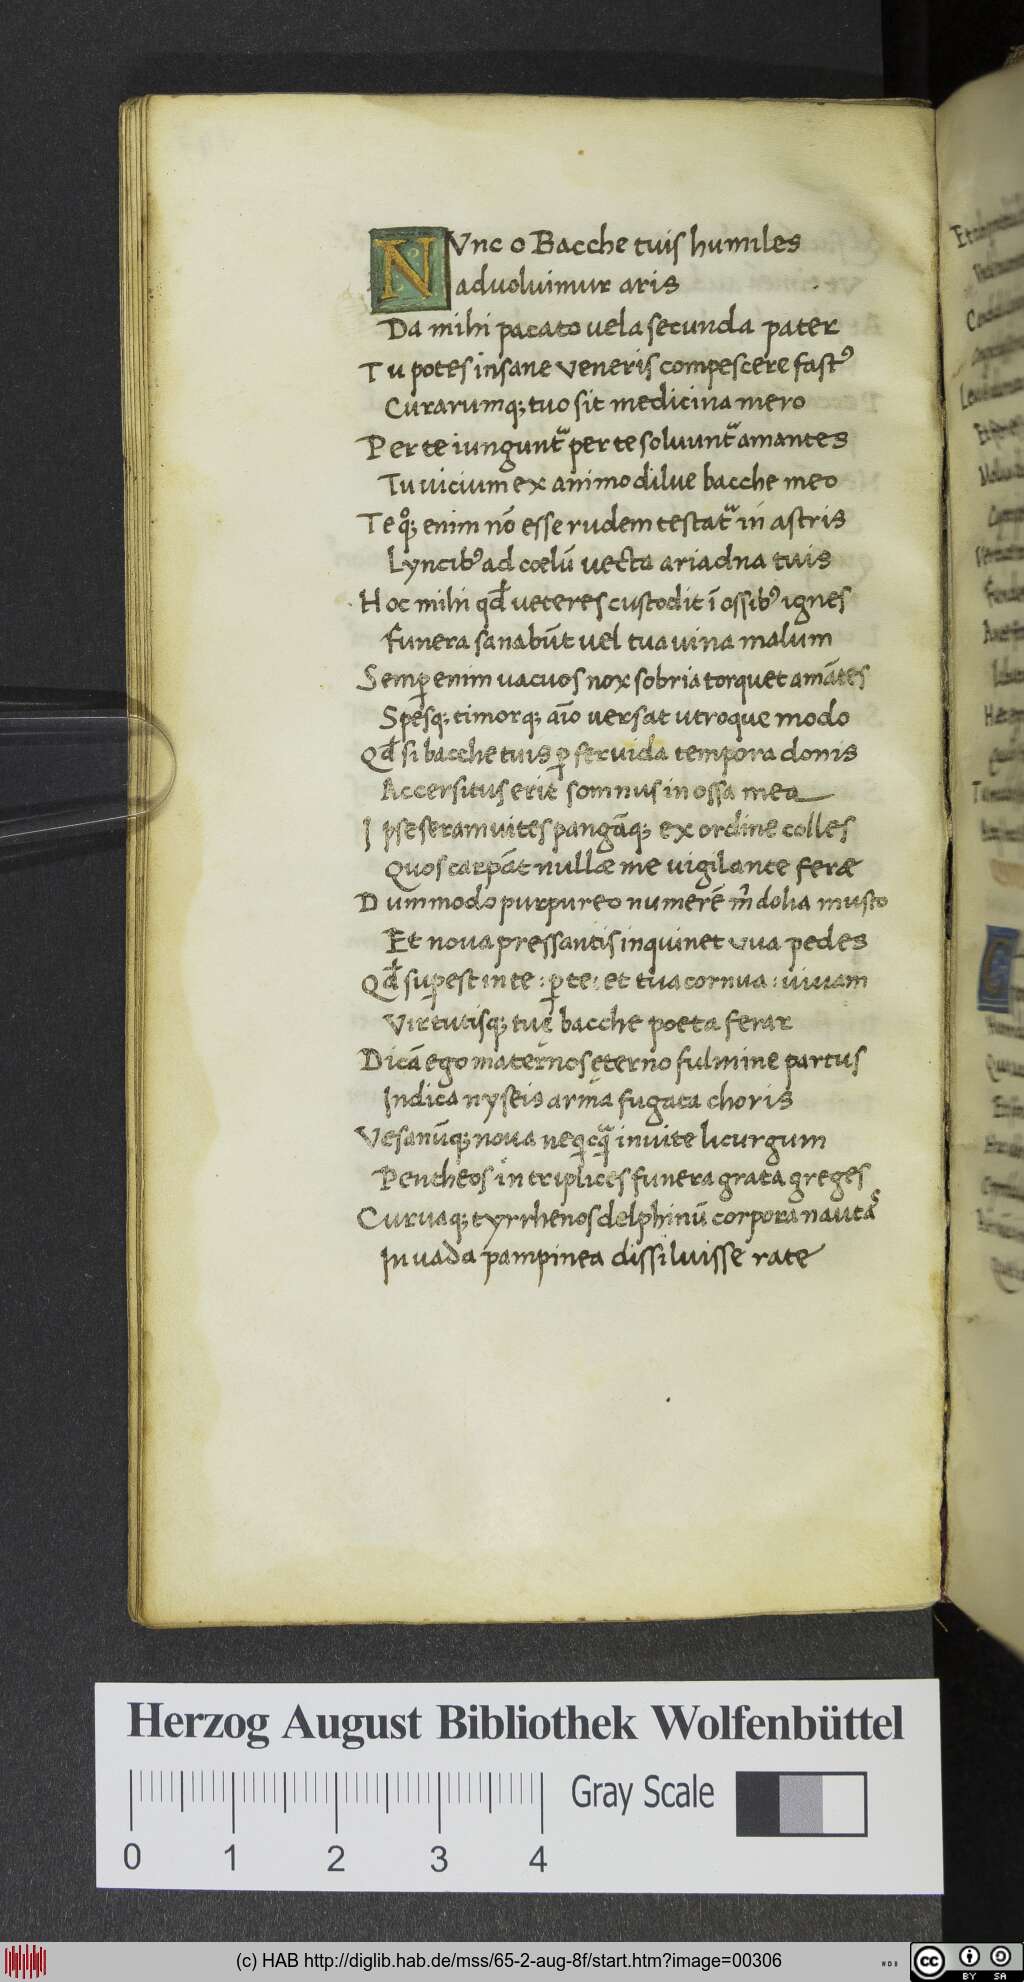 NVnc o Bacche tuis humiles
aduoluimur aris
Da mihi pacato uela secunda pater
Tu potes insane veneris compescere fastꝰ
Curarumq; tuo sit medicina mero
Per te iungunt᷑ per te soluunt᷑ amantes
Tu uicium ex animo dilue bacche meo
Te qͦ; enim nō esse rudem testat᷑ in astris
Lyncibꝰ ad cœlū vecta ariadna tuis
Hoc mihi qđ ueteres custodit ī ossibꝰ ignes
Funera sanabūt vel tua uina malum
Semꝑ enim uacuos nox sobria torquet amātes
Spesq; timorq; aīo versat utroque modo
Qđ si bacche tuis ꝑ feruida tempora donis
Accersitus erit somnus in ossa mea
Ipse seram uites pangāq; ex ordine colles
Quos carpāt nullæ me uigilante feræ
Dummodo purpureo numerē m̄ dolia musto
Et noua pressantis inquinet vua pedes
Qđ suꝑest in te : ꝑ te : et tua cornua : uiuam
Virtutisq; tuę bacche poeta ferar
Dicā ego maternos ęterno fulmine partus
Indica nyseis arma fugata choris
Vesanūq; noua neqͥcqᷓ inuite licurgum
Pentheos in triplices funera grata greges
Curuaq; tyrrhenos delphinū corpora nautas
In uada pampinea dissiluisse rate
Herzog August Bibliothek Wolfenbüttel
0 1 2 3 4
Gray Scale
(c) HAB http://diglib.hab.de/mss/65-2-aug-8f/start.htm?image=00306
cc BY SA